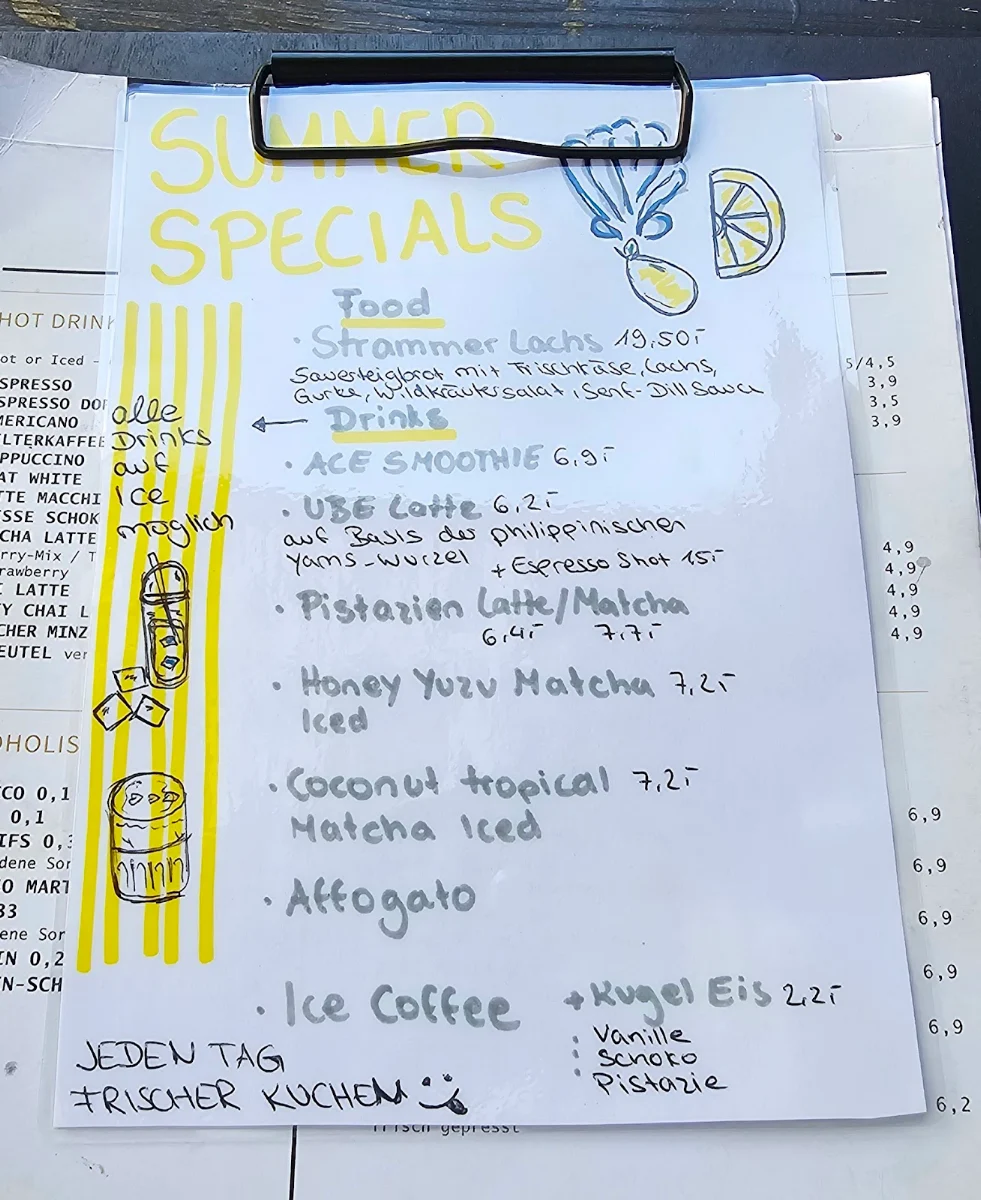 SUMMER
SPECIALS
Food
· Strammer Lachs 19,50,-
Sauerteigbrot mit Frischkäse, Lachs,
Gurke, Wildkräutersalat, Senf-Dill Sauce
Drinks
alle
Drinks
auf
Ice
möglich
· ACE SMOOTHIE 6,9,-
· UBE Latte 6,2,-
auf Basis der philippinischen
Yams-wurzel + Espresso Shot 15,-
· Pistazien Latte/Matcha
6,4,- 7,7,-
· Honey Yuzu Matcha 7,2,-
Iced
· Coconut tropical 7,2,-
Matcha Iced
· Affogato
· Ice Coffee + Kugel Eis 2,2,-
· Vanille
· Schoko
· Pistazie
JEDEN TAG
FRISCHER KUCHEN
HOT DRIN
ot or Iced -
SPRESSO
SPRESSO DO
MERICANO
LTERKAFFEE
PPUCCINO
AT WHITE
TTE MACCHI
SSE SCHOK
CHA LATTE
rry-Mix / T
rawberry
LATTE
Y CHAI L
CHER MINZ
EUTEL ver
5/4,5
3,9
3,5
3,9
4,9
4,9
4,9
4,9
4,9
OHOLIS
CO 0,1
0,1
IFS 0,3
dene Sor
O MART
33
ene Sor
IN 0,2
N-SCH
6,9
6,9
6,9
6,9
6,9
6,2
frisch gepresst